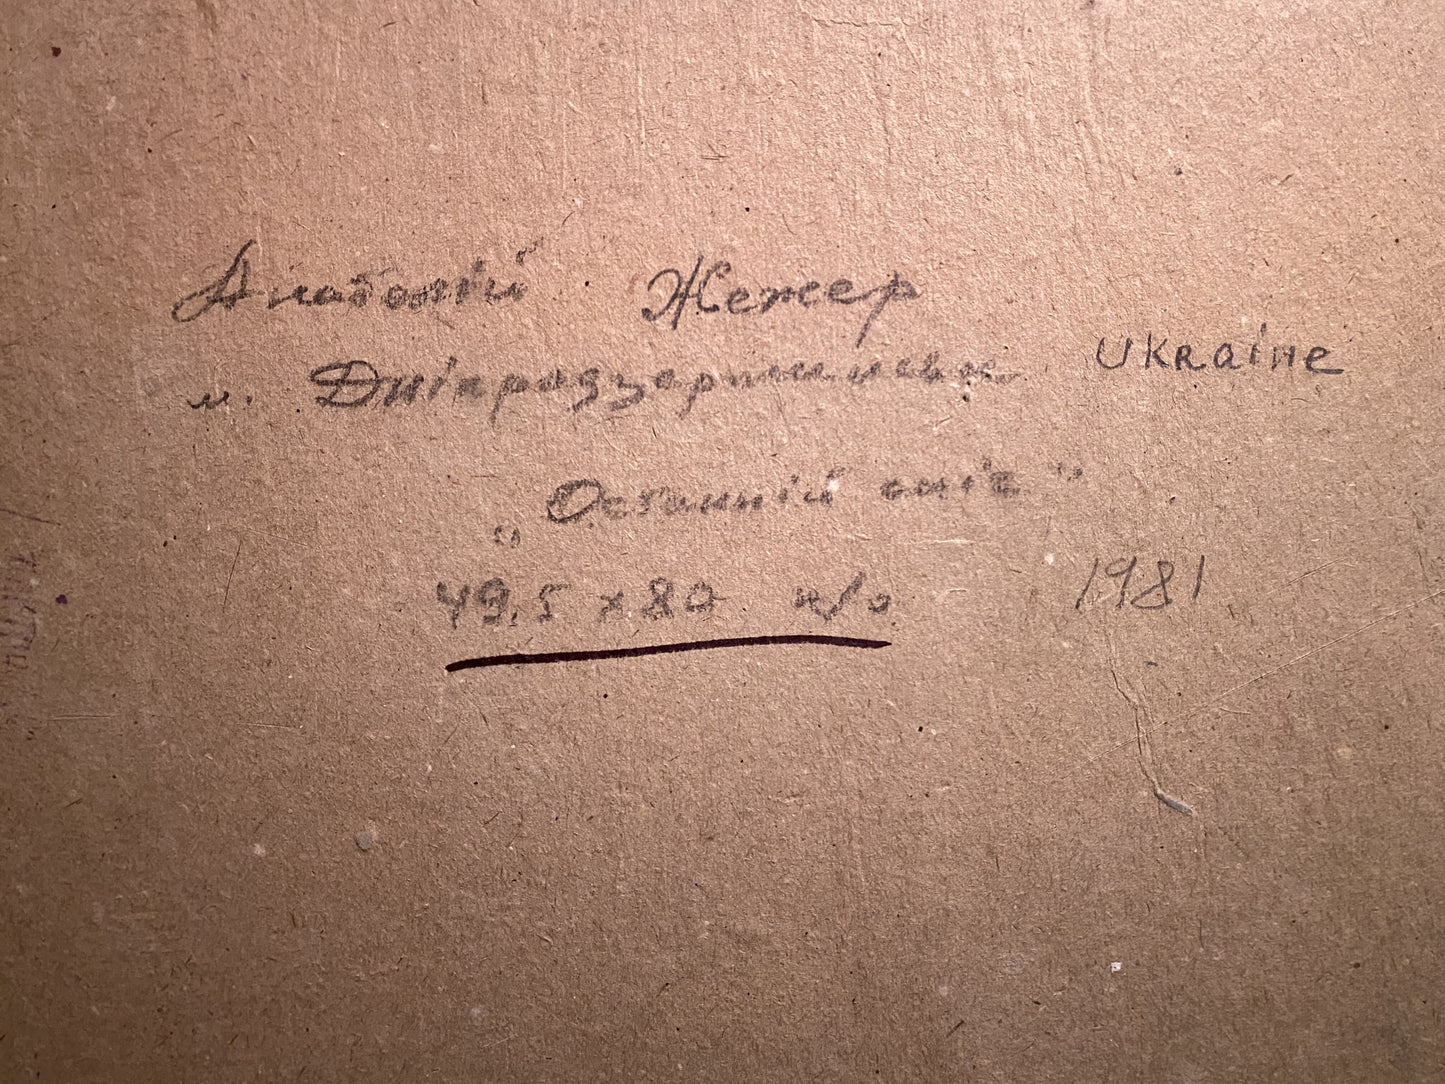 Анатолій Жежер
м. Дніпродзержинськ Ukraine
„Останній сніг”
49,5 х 80 к/о 1981